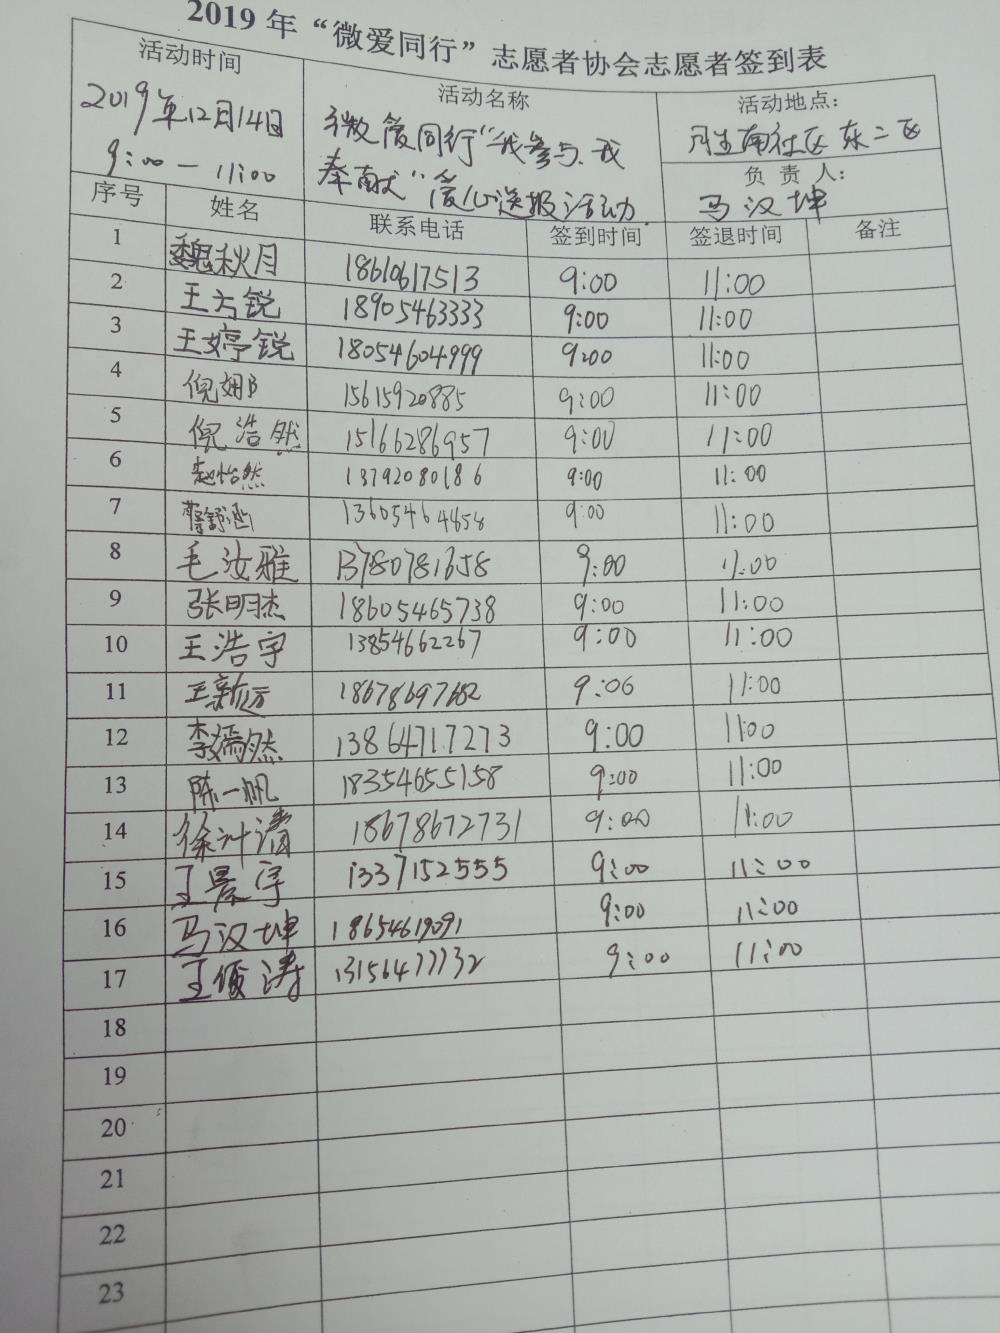 2019 年 “微爱同行” 志愿者协会志愿者签到表
活动时间 活动名称 活动地点：
2019年12月14日 微爱同行“我参与、我 南社区东二区
9:00 — 11:00 奉献”爱心送报活动 负 责 人：
马汉坤
序号 姓名 联系电话 签到时间 签退时间 备注
1 魏秋月 18610617513 9:00 11:00
2 王方锐 18905463333 9:00 11:00
3 王婷锐 18054604999 9:00 11:00
4 倪 15615920885 9:00 11:00
5 倪浩然 15166286957 9:00 11:00
6 赵怡然 13792080186 9:00 11:00
7 9:00 11:00
8 毛汝雅 13780781658 9:00 11:00
9 张明杰 18605465738 9:00 11:00
10 王浩宇 13854662267 9:00 11:00
11 王新远 18678697682 9:06 11:00
12 李嫣然 13864717273 9:00 11:00
13 陈一帆 18354655158 9:00 11:00
14 徐 18678672731 9:00 11:00
15 王景宇 13371525555 9:00 11:00
16 马汉坤 18654619091 9:00 11:00
17 王俊涛 13156477732 9:00 11:00
18
19
20
21
22
23